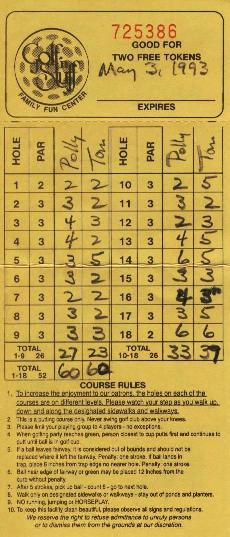 Golf Stuff
FAMILY FUN CENTER
725386
GOOD FOR
TWO FREE TOKENS
May 3, 1993
EXPIRES
HOLE PAR Polly Tom HOLE PAR Polly Tom
1 2 2 2 10 3 2 5
2 3 3 2 11 3 3 2
3 3 4 3 12 3 2 3
4 3 4 2 13 3 4 5
5 3 3 5 14 3 6 5
6 3 3 2 15 3 3 3
7 3 2 2 16 3 4 3
8 3 3 2 17 3 3 5
9 3 3 3 18 2 6 6
TOTAL 1-9 26 27 23 TOTAL 10-18 26 33 37
TOTAL 1-18 52 60 60
COURSE RULES
1. To increase the enjoyment to our patrons, the holes on each of the
courses are on different levels. Please watch your step as you walk up,
down and along the designated sidewalks and walkways.
2. This is a putting course only. Never swing golf club above your knees.
3. Please limit your playing group to 4 players - no exceptions.
4. When golfing party reaches green, person closest to cup putts first and continues to
putt until ball is in golf cup.
5. If a ball leaves fairway, it is considered out of bounds and should not be
replaced where it left the fairway. Penalty: one stroke. If ball lands in
trap, place 6 inches from trap edge no nearer hole. Penalty: one stroke
6. Ball near edge of fairway or green may be placed 12 inches from the
curb without penalty.
7. After 5 strokes, pick up ball - count 6 - go to next hole.
8. Walk only on designated sidewalks or walkways - stay out of ponds and planters.
9. NO running, jumping or HORSEPLAY.
10. To keep this facility clean and beautiful, please observe all signs and regulations.
We reserve the right to refuse admittance to unruly persons
or to dismiss them from the grounds at our discretion.